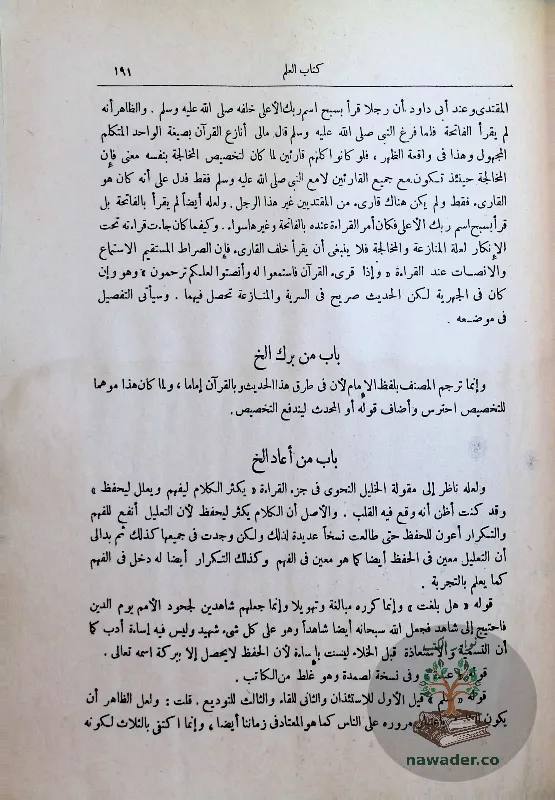 كتاب العلم
١٩١
المقتدى وعند أبى داود أن رجلا قرأ بسبح اسم ربك الأعلى خلفه صلى الله عليه وسلم . والظاهر أنه
لم يقرأ الفاتحة فلما فرغ النبى صلى الله عليه وسلم قال مالى أنازع القرآن بصيغة الواحد المتكلم
المجهول وهذا فى واقعة الظهر ، فلو كانوا كلهم قارئين لما كان لتخصيص المخالجة بنفسه معنى فإن
المخالجة حينئذ تكون مع جميع القارئين لامع النبى صلى الله عليه وسلم فقط فدل على أنه كان هو
القارى. فقط ولم يكن هناك قارى. من المقتديين غير هذا الرجل . ولعله أيضاً لم يقرأ بالفاتحة بل
قرأ بسبح اسم ربك الأعلى فكان أمر القراءة عنده بالفاتحة وغيرها سواء . وكيفما كان جاءت قراءته تحت
الإنكار لعلة المنازعة والمخالجة فلا ينبغى أن يقرأ خلف القارى. فإن الصراط المستقيم الاستماع
والانصات عند القراءة « وإذا قرىء القرآن فاستمعوا له وأنصتوا لعلكم ترحمون » وهو وإن
كان فى الجهرية لكن الحديث صريح فى السرية والمنازعة تحصل فيهما . وسيأتى التفصيل
فى موضعه .
باب من برك الخ
وإنما ترجم المصنف بلفظ الإمام لأن فى طرق هذا الحديث وبالقرآن إماما ، ولما كان هذا موهما
للتخصيص احترس وأضاف قوله أو المحدث ليندفع التخصيص .
باب من أعاد الخ
ولعله ناظر إلى مقولة الخليل النحوى فى جزء القراءة « يكثر الكلام ليفهم ويعلل ليحفظ »
وقد كنت أظن أنه وقع فيه القلب . والأصل أن الكلام يكثر ليحفظ لأن التعليل أنفع للفهم
والتكرار أعون للحفظ حتى طالعت نسخاً عديدة لذلك ولكن وجدت فى جميعها كذلك ثم بدالى
أن التعليل معين فى الحفظ أيضا كما هو معين فى الفهم وكذلك التكرار أيضا له دخل فى الفهم
كما يعلم بالتجربة .
قوله « هل بلغت » وإنما كرره مبالغة وتهويلا وإنما جعلهم شاهدين لجحود الأمم يوم الدين
فاحتيج إلى شاهد فجعل الله سبحانه أيضا شاهداً وهو على كل شىء شهيد وليس فيه إساءة أدب كما
أن التسمية والاستعاذة قبل الخلاء ليست بإساءة لأن الحفظ لايحصل إلا ببركة اسمه تعالى .
وفى نسخة لصمدة وهو غلط من الكاتب .
قوله قيل الأول للاستئذان والثانى للقاء والثالث للتوديع . قلت : ولعل الظاهر أن
يكون مروره على الناس كما هو المعتاد فى زماننا أيضا ، وإنما اكتفى بالثلاث لكونه
nawader.co